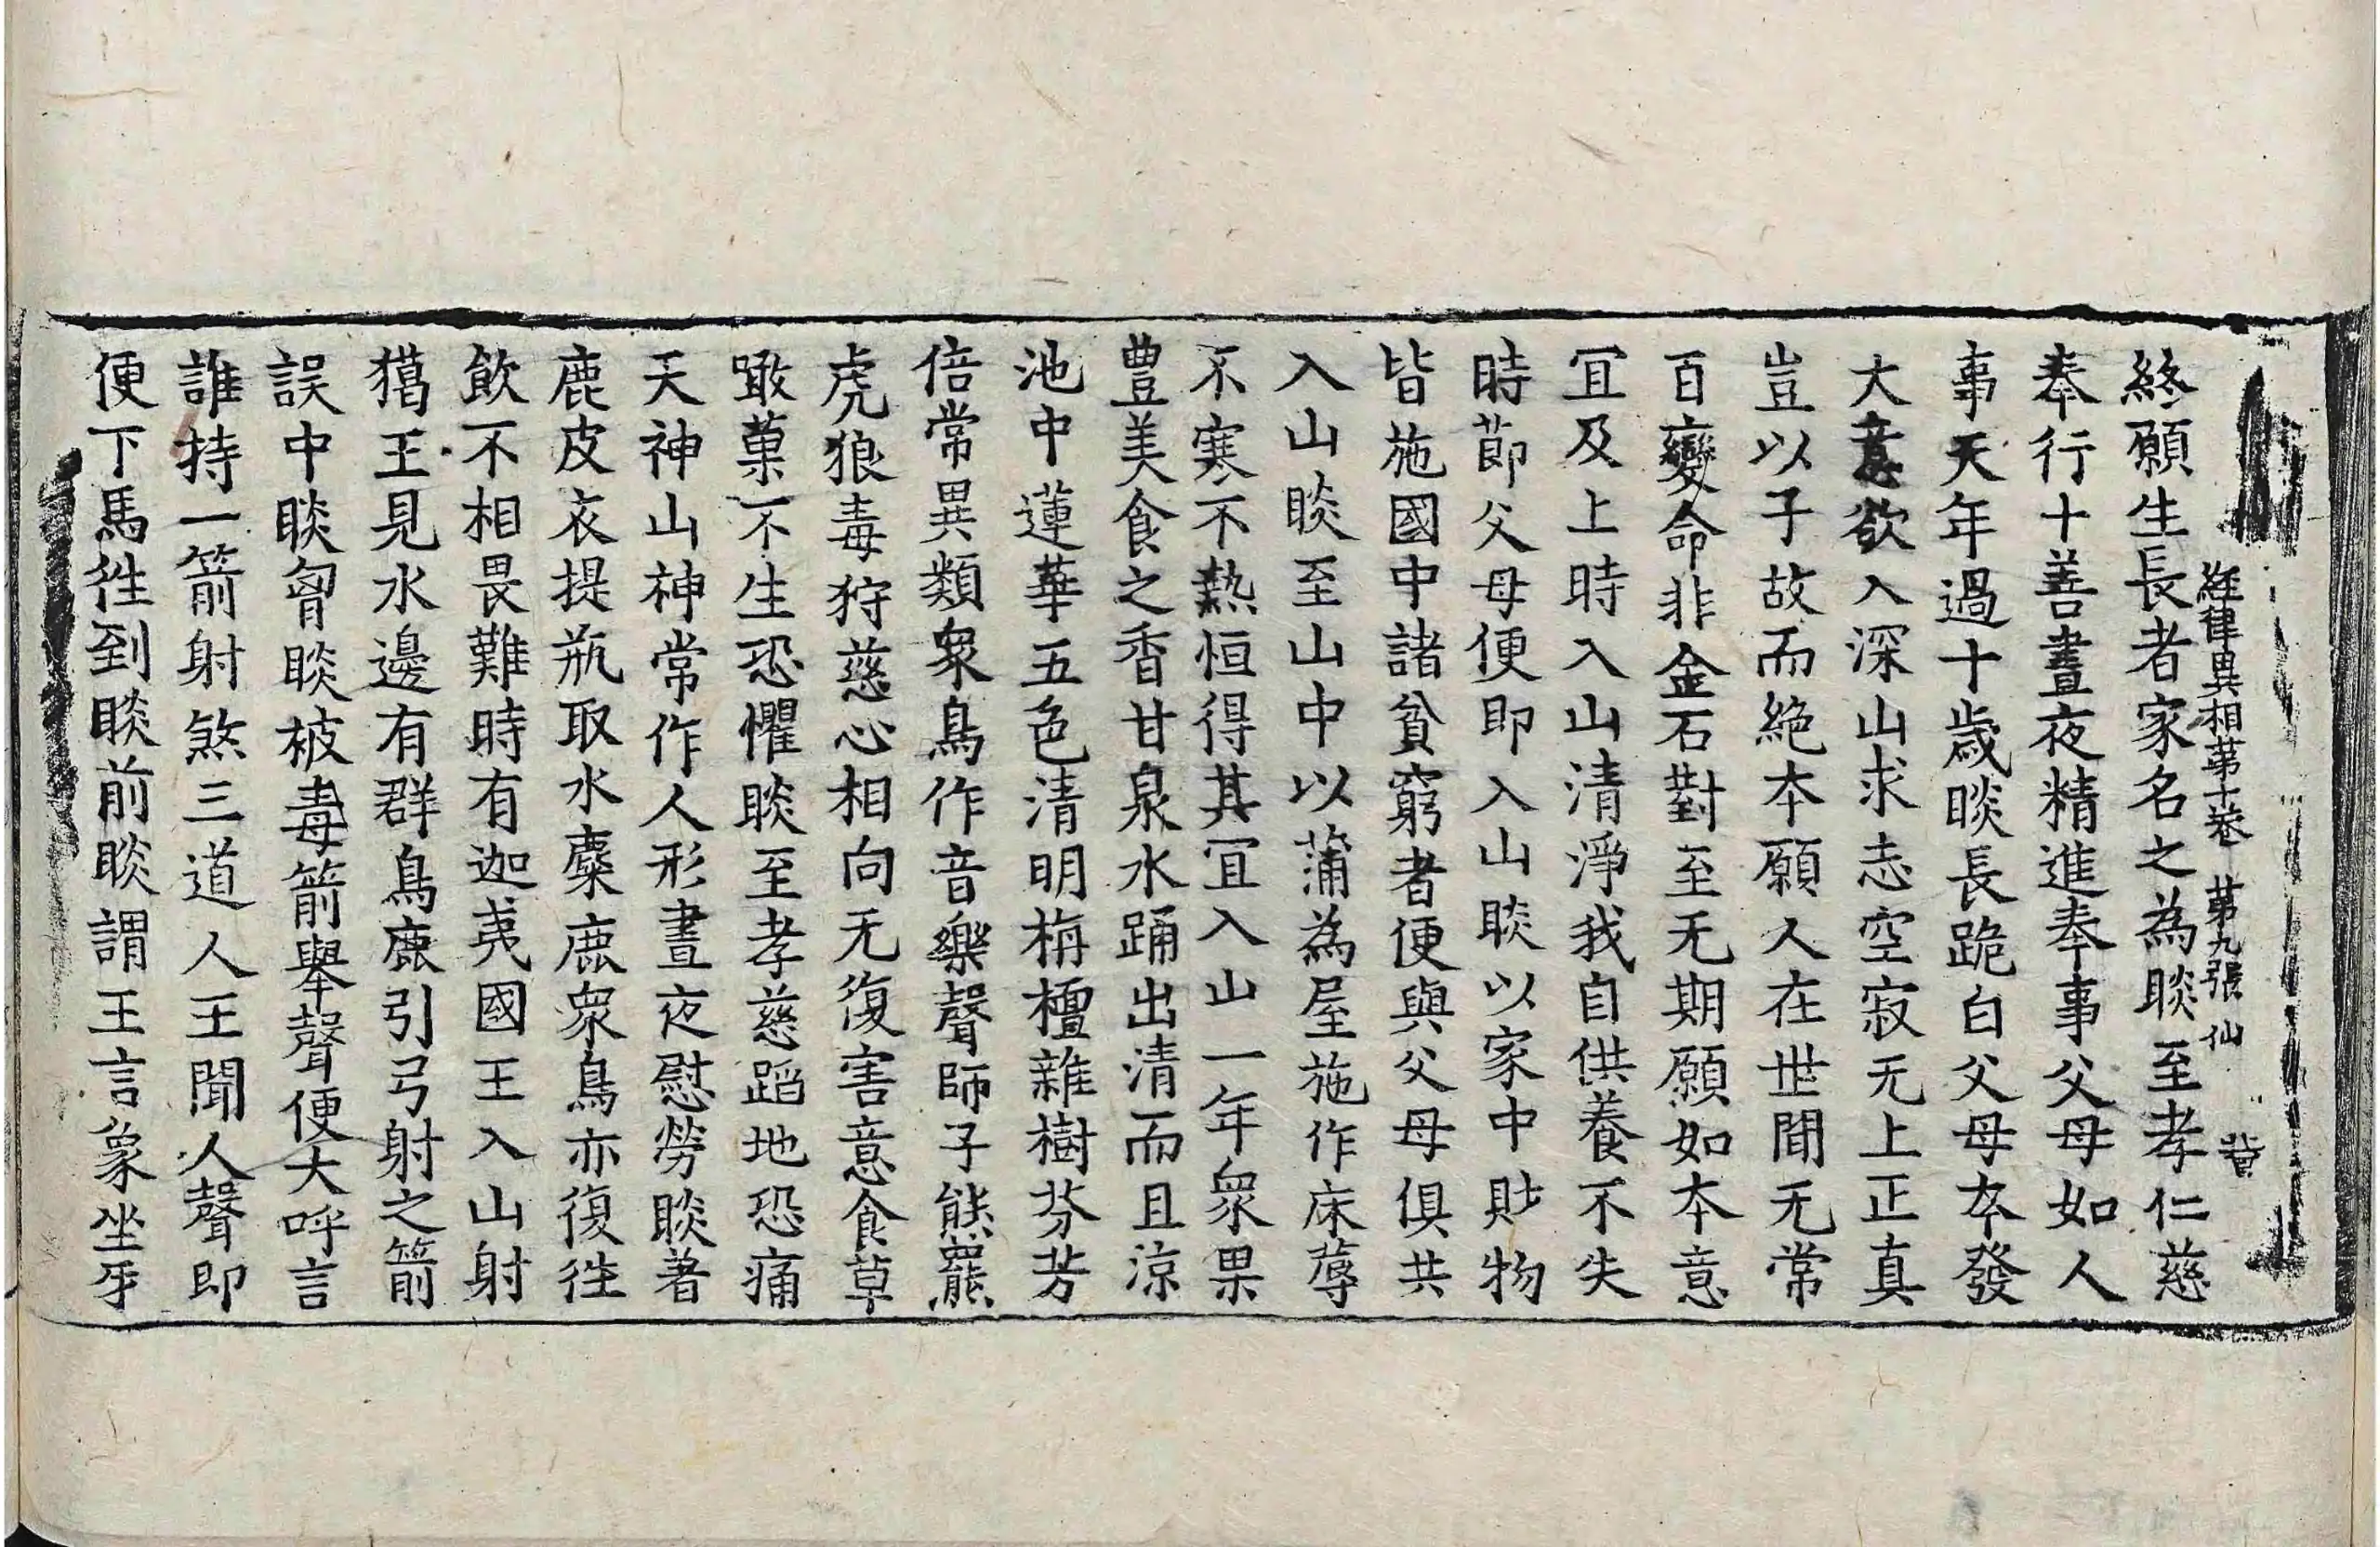 経律異相第十卷 第九張 仙
終願生長者家名之為睒至孝仁慈
奉行十善晝夜精進奉事父母如人
事天年過十歲睒長跪白父母本發
大意欲入深山求志空寂无上正真
豈以子故而絶本願人在世間无常
百變命非金石對至无期願如本意
冝及上時入山清淨我自供養不失
時節父母便即入山睒以家中財物
皆施國中諸貧窮者便與父母俱共
入山睒至山中以蒲為屋施作床蓐
不寒不熱恒得其冝入山一年衆果
豊美食之香甘泉水踊出清而且涼
池中蓮華五色清明栴檀雜樹芬芳
倍常異類衆鳥作音樂聲師子熊羆
虎狼毒狩慈心相向无復害意食草
噉菓不生恐懼睒至孝慈蹈地恐痛
天神山神常作人形晝夜慰勞睒著
鹿皮衣提瓶取水麋鹿衆鳥亦復徃
飲不相畏難時有迦夷國王入山射
獦王見水邊有群鳥鹿引弓射之箭
誤中睒胷睒被毒箭舉聲便大呼言
誰持一箭射煞三道人王聞人聲即
便下馬徃到睒前睒謂王言象坐牙